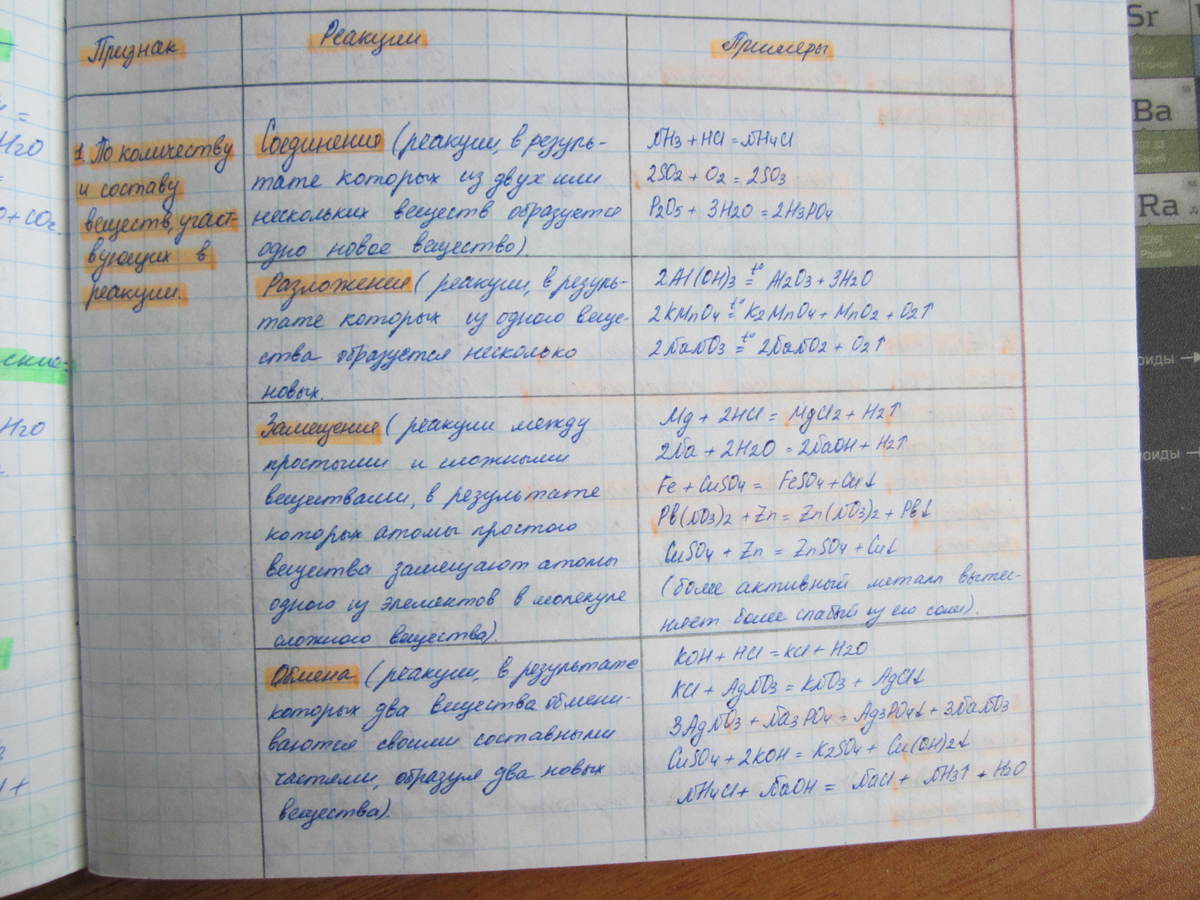 Признак
Реакции
Примеры
1. По количеству
и составу
веществ, участ-
вующих в
реакции.
Соединения (реакции, в резуль-
тате которых из двух или
нескольких веществ образуется
одно новое вещество).
NH3 + HCl = NH4Cl
2SO2 + O2 = 2SO3
P2O5 + 3H2O = 2H3PO4
Разложения (реакции, в резуль-
тате которых из одного веще-
ства образуется несколько
новых.
2Al(OH)3 t°= Al2O3 + 3H2O
2KMnO4 t°= K2MnO4 + MnO2 + O2↑
2NaNO3 t°= 2NaNO2 + O2↑
Замещения (реакции между
простыми и сложными
веществами, в результате
которых атомы простого
вещества замещают атомы
одного из элементов в молекуле
сложного вещества).
Mg + 2HCl = MgCl2 + H2↑
2Na + 2H2O = 2NaOH + H2↑
Fe + CuSO4 = FeSO4 + Cu↓
Pb(NO3)2 + Zn = Zn(NO3)2 + Pb↓
CuSO4 + Zn = ZnSO4 + Cu↓
(более активный металл вытес-
няет более слабый из его соли).
Обмена (реакции, в результате
которых два вещества обмени-
ваются своими составными
частями, образуя два новых
вещества).
KOH + HCl = KCl + H2O
KCl + AgNO3 = KNO3 + AgCl↓
3AgNO3 + Na3PO4 = Ag3PO4↓ + 3NaNO3
CuSO4 + 2KOH = K2SO4 + Cu(OH)2↓
NH4Cl + NaOH = NaCl + NH3↑ + H2O
H2O
+ CO2
H2O
Sr
Ba
Ra